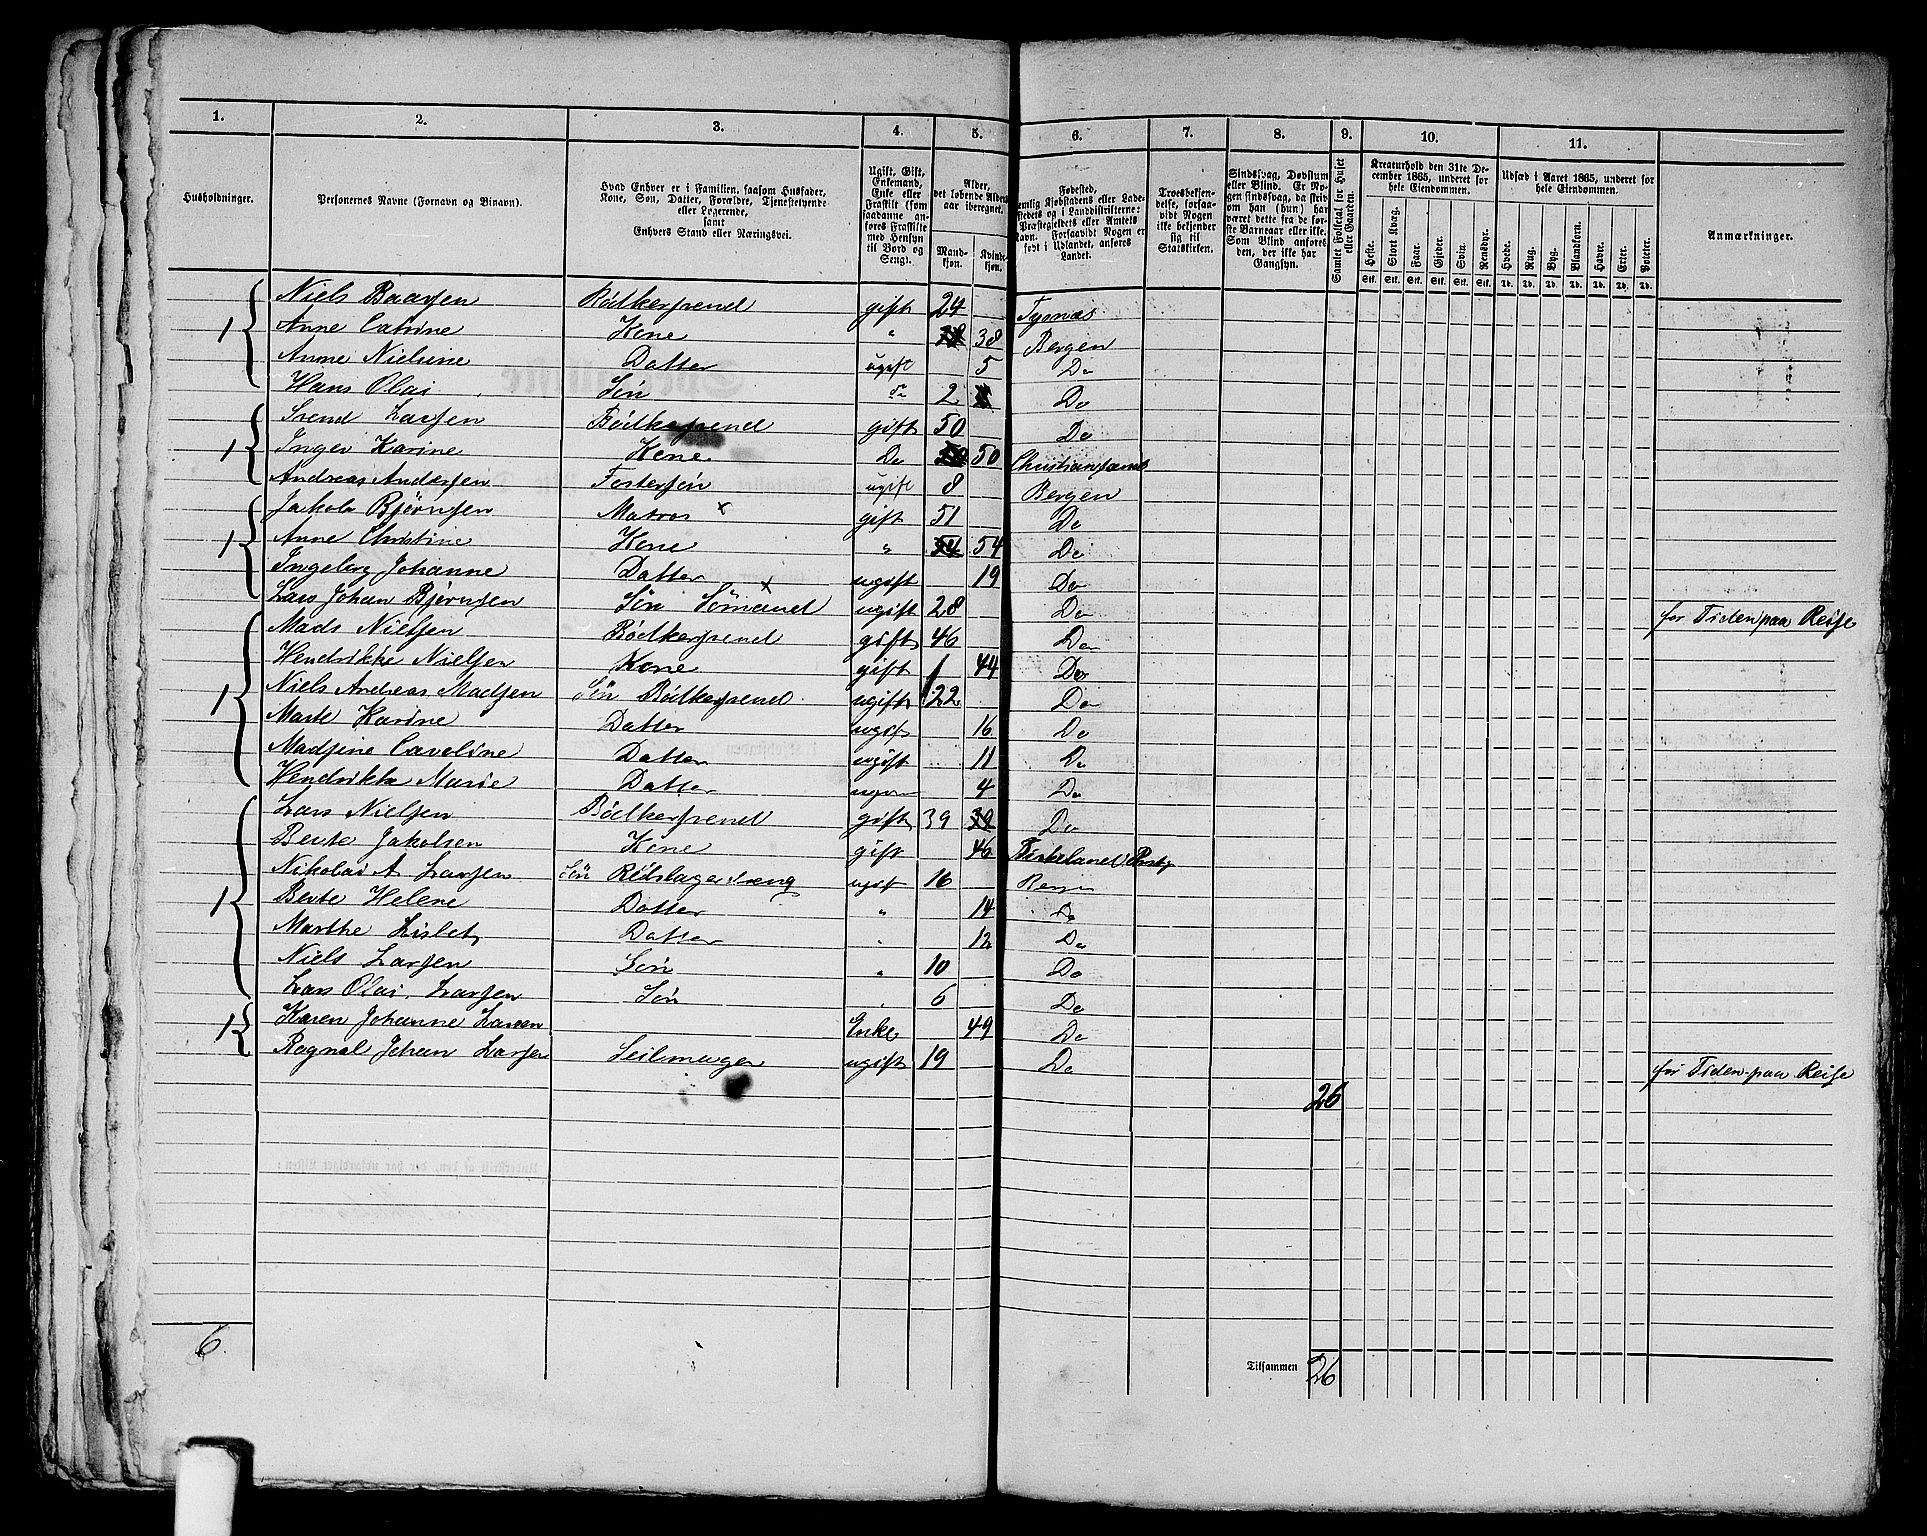 1. 2. 3. 4. 5. 6. 7. 8. 9. 10. 11.
Husholdninger.
Personernes Navne (Fornavn og Binavn).
Hvad Enhver er i Familien, saasom Husfader,
Kone, Søn, Datter, Forældre, Tjenestetyende
eller Logerende,
samt
Enhvers Stand eller Næringsvei.
Ugift, Gift,
Enkemand,
Enke eller
Fraskilt (som
saadanne an-
føres Fraskilte
med Hensyn
til Bord og
Seng).
Alder,
det løbende Alders-
aar iberegnet.
Mand-
kjøn.
Kvinde-
kjøn.
Fødested,
nemlig Kjøbstadens eller Lade-
stedets og i Landdistrikterne:
Præstegjeldets eller Amtets
Navn. Forsaavidt Nogen er
født i Udlandet, anføres
Landet.
Troesbekjen-
delse, forsaa-
vidt Nogen
ikke bekjender
sig til
Statskirken.
Sindssvag, Døvstum
eller Blind. Er No-
gen sindssvag, da skriv
om han (hun) har
været dette fra de før-
ste Barneaar eller ikke.
Som Blind anføres
den, der ikke har
Gangsyn.
Samlet Folketal for Huset
eller Gaarden.
Kreaturhold den 31te De-
cember 1865, underet for
hele Eiendommen.
Heste. Stort Kvæg. Faar. Gjeder. Svin. Rensdyr.
Stk. Stk. Stk. Stk. Stk. Stk.
Udsæd i Aaret 1865, underet for
hele Eiendommen.
Hvede. Rug. Byg. Blandkorn. Havre. Erter. Poteter.
Td. Td. Td. Td. Td. Td. Td.
Anmærkninger.
Niels Baarsen Bødkersvend gift 24 Tysnæs
1 Anne Catrine Kone " 38 Bergen
Anne Nielsine Datter ugift 5 Do
Hans Olai Søn do 2 Do
Svend Larsen Bødkersvend gift 50 Do
1 Inger Karine Kone Do 50 Christiansund
Andreas Andersen Fostersøn ugift 8 Bergen
Jakob Bjørnsen Matros x gift 51 Do
1 Anne Christine Kone " 54 Do
Ingeborg Johanne Datter ugift 19 Do
Lars Johan Bjørnsen Søn Sømand x ugift 28 Do for Tiden paa Reise
Mads Nielsen Bødkersvend gift 46 Do
Hendrikke Nielsen Kone gift 44 Do
1 Niels Andreas Madsen Søn Bødkersvend ugift 22 Do
Marte Karine Datter ugift 16 Do
Madsine Caroline Datter ugift 11 Do
Hendrikke Marie Datter 4 Do
Lars Nielsen Bødkersvend gift 39 Do
Berte Jakobsen Kone gift 46
Nikolai A Larsen Søn Rebslagerdreng ugift 16 Bergen
1 Berte Helene Datter " 14 Do
Marthe Lisbet Datter " 12 Do
Niels Larsen Søn " 10 Do
Lars Olai Larsen Søn " 6 Do
1 Karen Johanne Larsen Enke 49 Do
Ragnal Johan Larsen Seilmager ugift 19 Do for Tiden paa Reise
26
6
Tilsammen 26